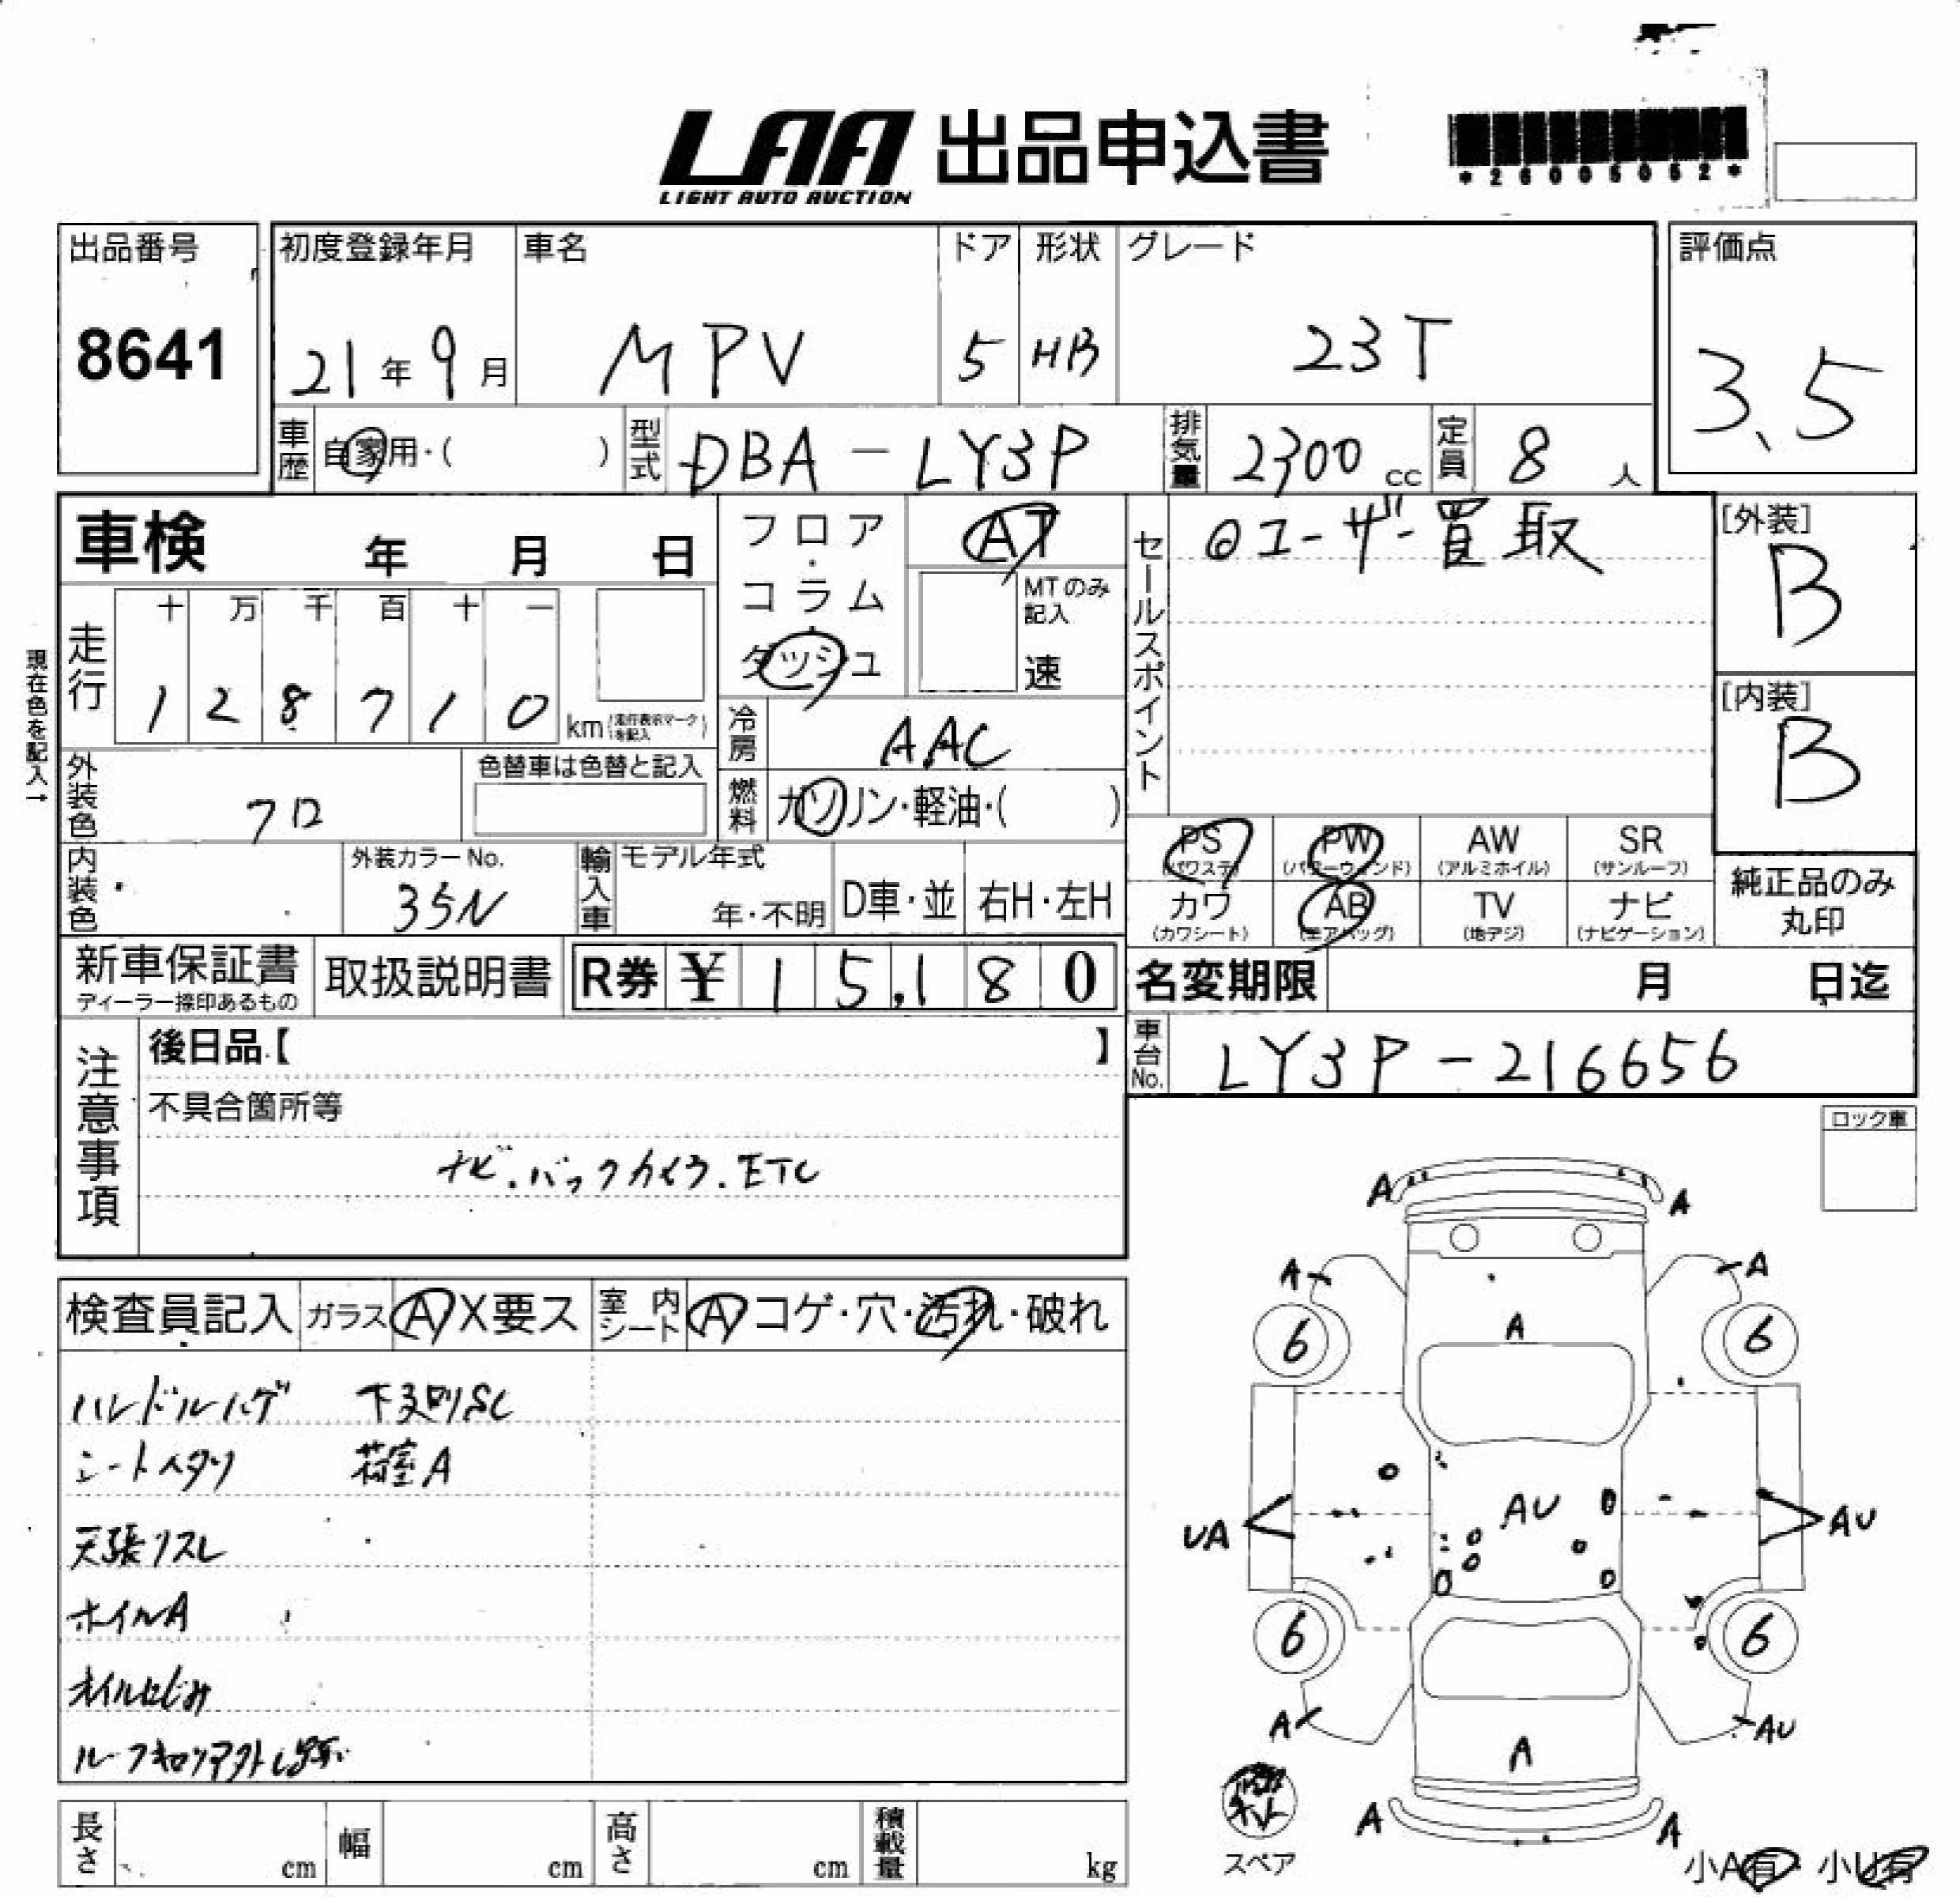 LAA 出品申込書
LIGHT AUTO AUCTION
*26005052*
出品番号
8641
初度登録年月
21年9月
車名
MPV
ドア
5
形状
HB
グレード
23T
評価点
3.5
車歴
自家用・( )
型式
DBA-LY3P
排気量
2300cc
定員
8人
車検 年 月 日
フロア・コラム・ダッシュ
AT
MTのみ記入
速
セールスポイント
◎ユーザー買取
[外装]
B
[内装]
B
現在色を記入→
走行
十 万 千 百 十 一
1 2 8 7 1 0 km(走行表示マークを記入)
冷房
AAC
外装色
クロ
色替車は色替と記入
燃料
ガソリン・軽油・( )
内装色
外装カラーNo.
35N
輸入車
モデル年式
年・不明
D車・並
右H・左H
PS (パワステ)
PW (パワーウィンド)
AW (アルミホイル)
SR (サンルーフ)
カワ (カワシート)
AB (エアバッグ)
TV (地デジ)
ナビ (ナビゲーション)
純正品のみ丸印
新車保証書
ディーラー捺印あるもの
取扱説明書
R券 ¥15,180
名変期限 月 日迄
車台No.
LY3P-216656
注意事項
後日品【 】
不具合箇所等
ナビ.バックカメラ.ETC
ロック車
検査員記入
ガラス A X要ス
室内シート A コゲ・穴・汚れ・破れ
ハンドルハゲ 下廻りSC
シートヘタリ 荷室A
天張リスレ
ホイルA
オイルにじみ
A A
A A
6 6
A
UA AU AU
6 6
A AU
A
A A
スペア
小A有・小U有
長さ cm
幅 cm
高さ cm
積載量 kg